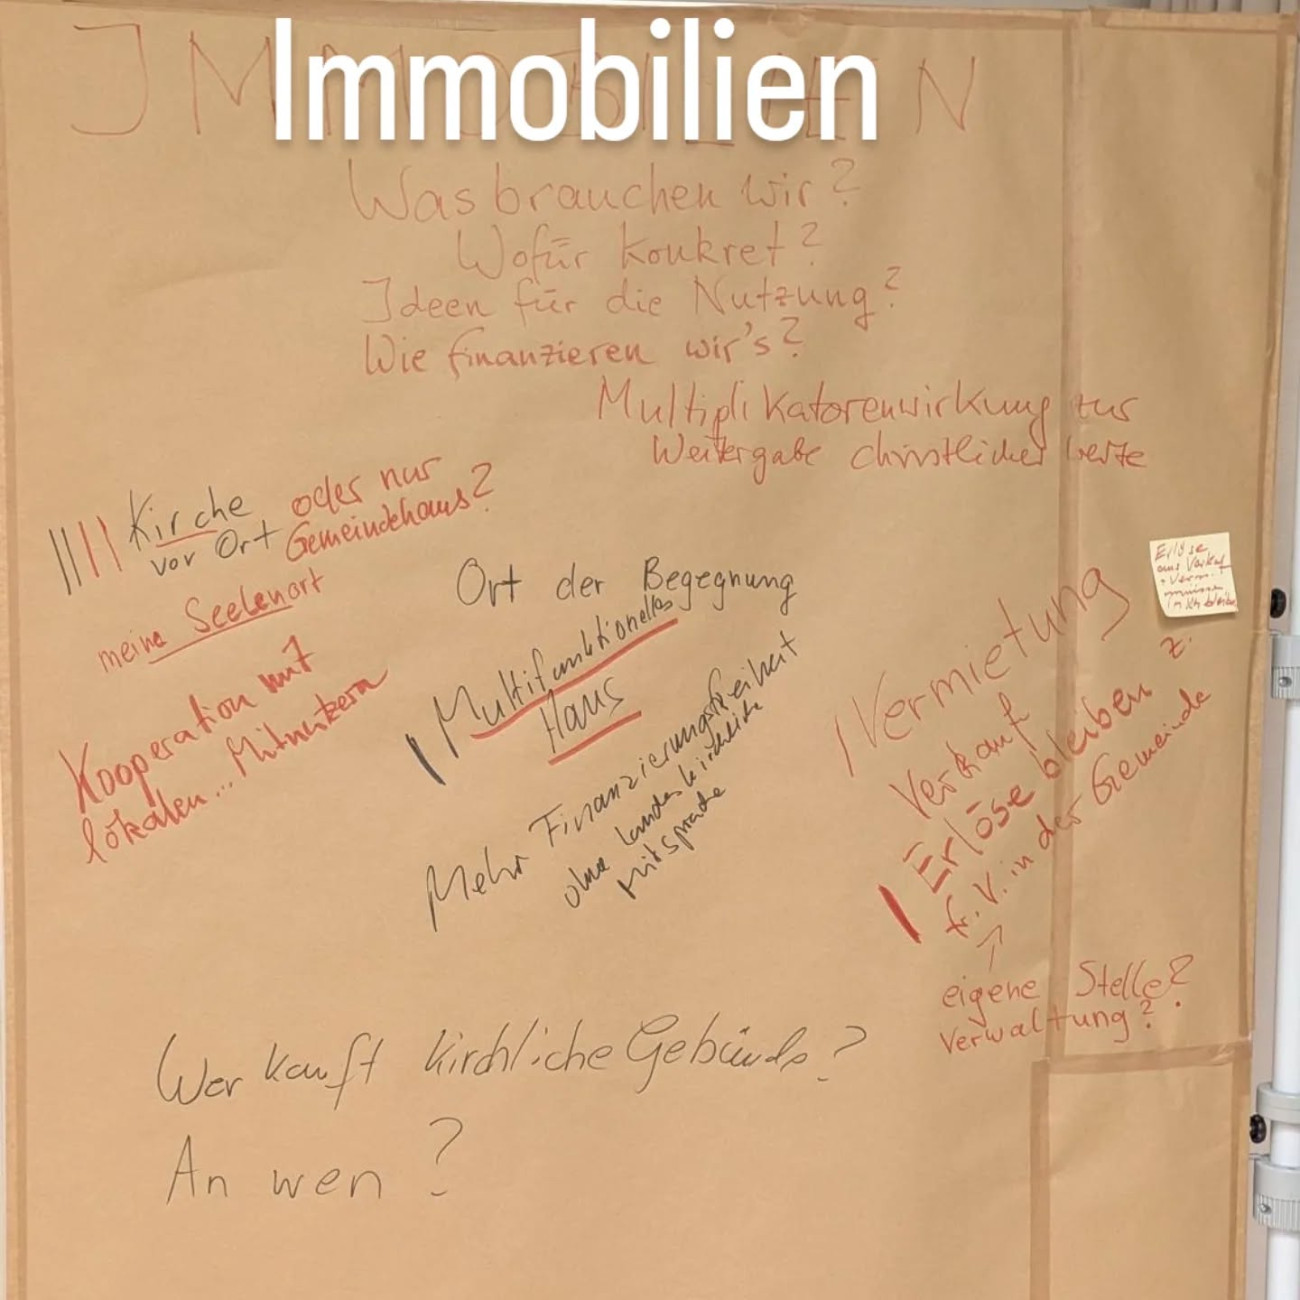 Immobilien
IMMOBILIEN
Was brauchen wir?
Wofür konkret?
Ideen für die Nutzung?
Wie finanzieren wir's?
Multiplikatorenwirkung zur
Weitergabe christlicher Werte
|||| Kirche oder nur
vor Ort Gemeindehaus?
meine Seelenort
Kooperation mit
lokalen... Mitnutzern
Ort der Begegnung
| Multifunktionelles
Haus
Mehr Finanzierungsfreiheit
ohne landeskirchliche
mitsprache
| Vermietung
Verkauf
| Erlöse bleiben z.
f. V. in der Gemeinde
↑
eigene Stelle?
Verwaltung?
Erlöse
aus Verkauf
müssen
Wer kauft kirchliche Gebäude?
An wen?